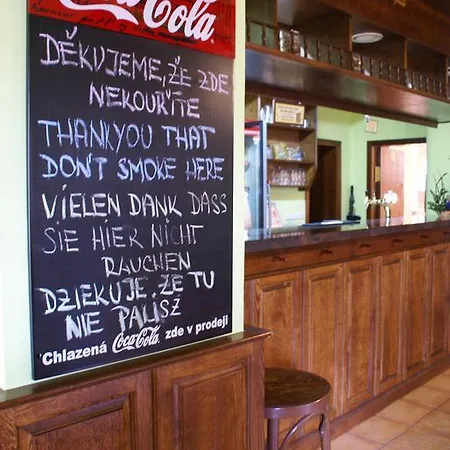 Coca-Cola
DĚKUJEME, ŽE ZDE
NEKOUŘÍTE
THANK YOU THAT
DON'T SMOKE HERE
VIELEN DANK DASS
SIE HIER NICHT
RAUCHEN
DZIEKUJE, ŻE TU
NIE PALISZ
Chlazená Coca-Cola zde v prodeji